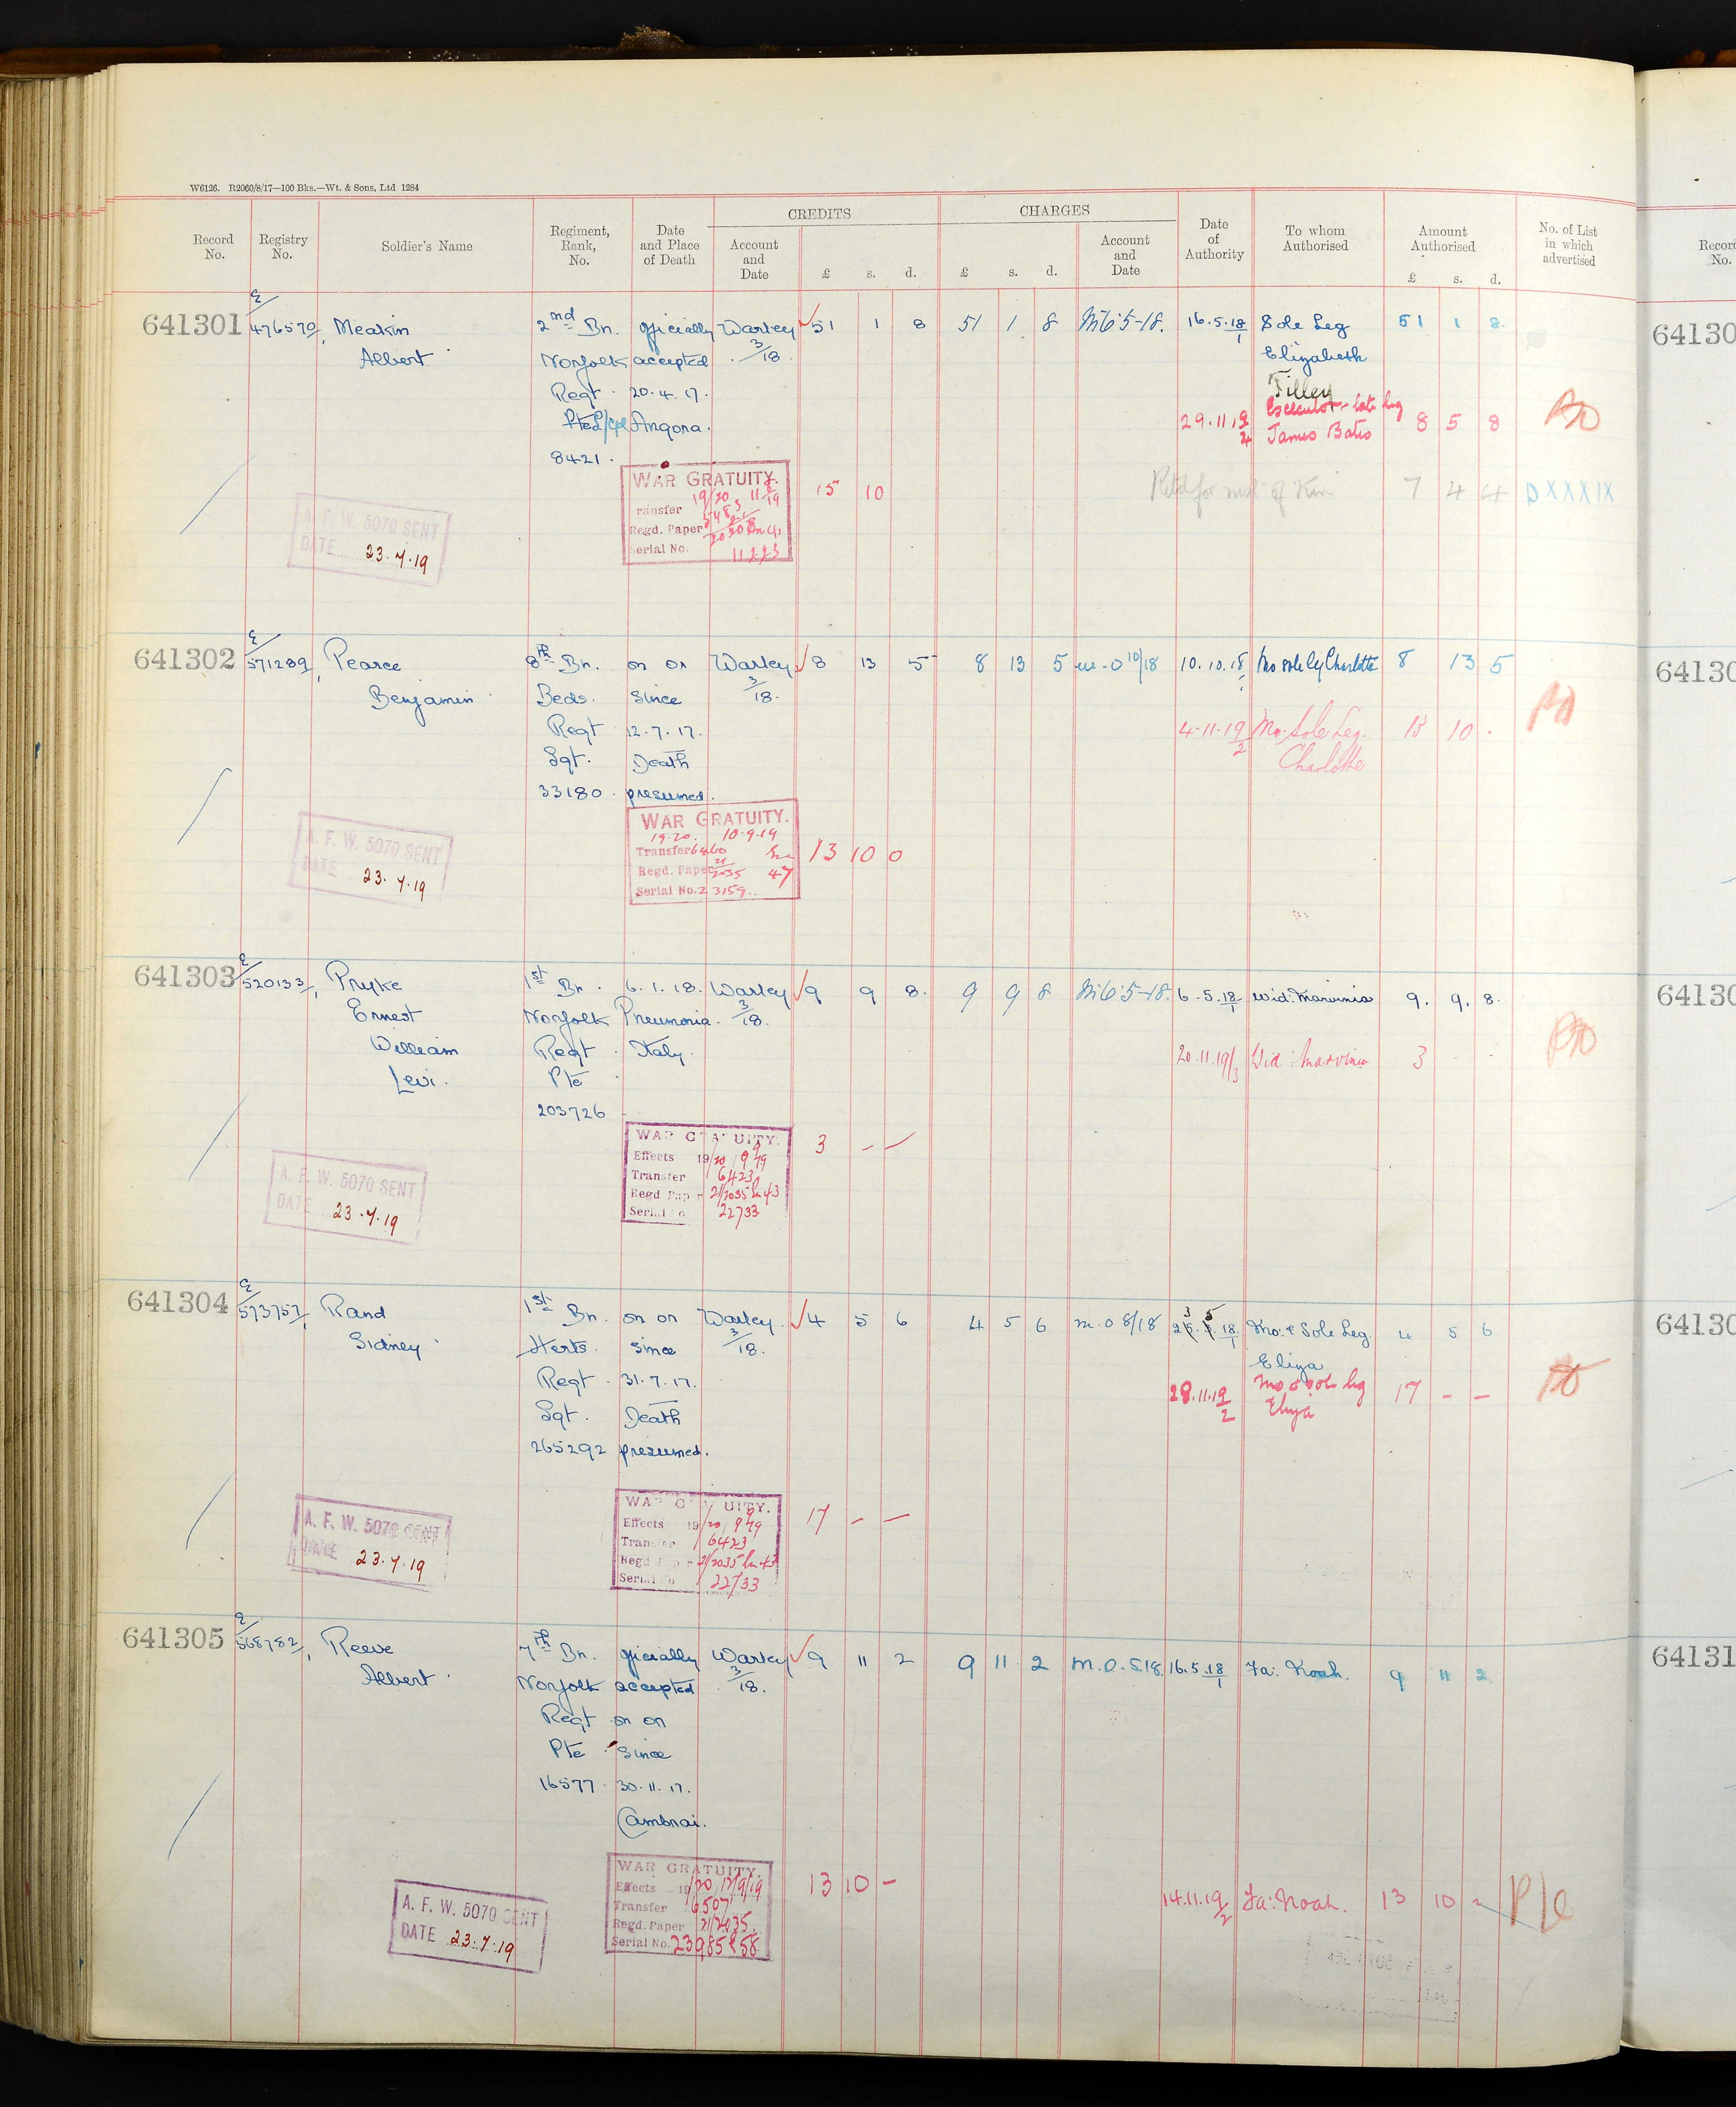 W6126. R2060/8/17—100 Bks.—Wt. & Sons, Ltd 1284
Record No.
Registry No.
Soldier's Name
Regiment, Rank, No.
Date and Place of Death
CREDITS
Account and Date
£ s. d.
CHARGES
£ s. d.
Account and Date
Date of Authority
To whom Authorised
Amount Authorised
£ s. d.
No. of List in which advertised
Record No.
641301 E/476570/1 Meakin 2nd Bn. officially Warley 51 1 8 51 1 8 16.5.18/1 Sole Leg 51 1 8
Albert Norfolk accepted 3/18. Elizabeth
Regt. 20.4.17. Tilley
Pte L/Cpl Angora. 29.11.19/2 James Bates 8 5 8
8421.
WAR GRATUITY. 15 10
19/20
Transfer
Regd. Paper
Serial No.
7 4 4 DXXXIX
A. F. W. 5070 SENT
DATE 23.7.19
64130
641302 E/571289/1 Pearce 8th Bn. on or Warley 8 13 5 8 13 5 10/18 10.10.18/1 Mo sole leg Charlotte 8 13 5
Benjamin Beds. since 3/18.
Regt 12.7.17. 4-11-19/2 Mo. Sole Leg. 13 10 .
Sgt. Death Charlotte
33180. presumed.
WAR GRATUITY.
19-20. 10.9.19
Transfer 6460 13 10 0
Regd. Paper 21/2035 47
Serial No. 23159
A. F. W. 5070 SENT
DATE 23.7.19
64130
641303 E/520133/1 Pryke 1st Bn. 6.1.18. Warley 9 9 8. 9 9 8 6.5.18/1 Wid: Marvinia 9. 9. 8.
Ernest Norfolk Pneumonia. 3/18.
William Regt. Italy. 20.11.19/3 Wid: Marvinia 3 - -
Levi. Pte
203726
WAR GRATUITY. 3 - -
Effects 19/20 9/9/19
Transfer 6423
Regd Paper 21/2035 Ln 43
Serial No 22733
A. F. W. 5070 SENT
DATE 23.7.19
64130
641304 E/573757/1 Rand 1st Bn. on or Warley. 4 5 6 4 5 6 m.o 8/18 Mo: & Sole Leg. 4 5 6
Sidney Herts. since 3/18. Eliza
Regt. 31.7.17. 28.11.19/2 Mo & sole leg 17 - -
Sgt. Death Eliza
265292 presumed.
WAR GRATUITY. 17 - -
Effects 19/20 9/9/19
Transfer 6423
Regd Paper 21/2035 Ln 43
Serial No 22733
A. F. W. 5070 SENT
DATE 23.7.19
64130
641305 E/568782/1 Reeve 7th Bn. officially Warley 9 11 2 9 11 2 M.O.5.18 16.5.18/1 Fa: Noah. 9 11 2
Albert Norfolk accepted 3/18.
Regt on or
Pte since
16577. 30.11.17.
Cambrai.
WAR GRATUITY. 13 10 -
Effects 19/20 12/9/19
Transfer 6507
Regd. Paper 21/2035
Serial No. 23985 & 58
14.11.19/2 Fa: Noah. 13 10 -
A. F. W. 5070 SENT
DATE 23.7.19
64131